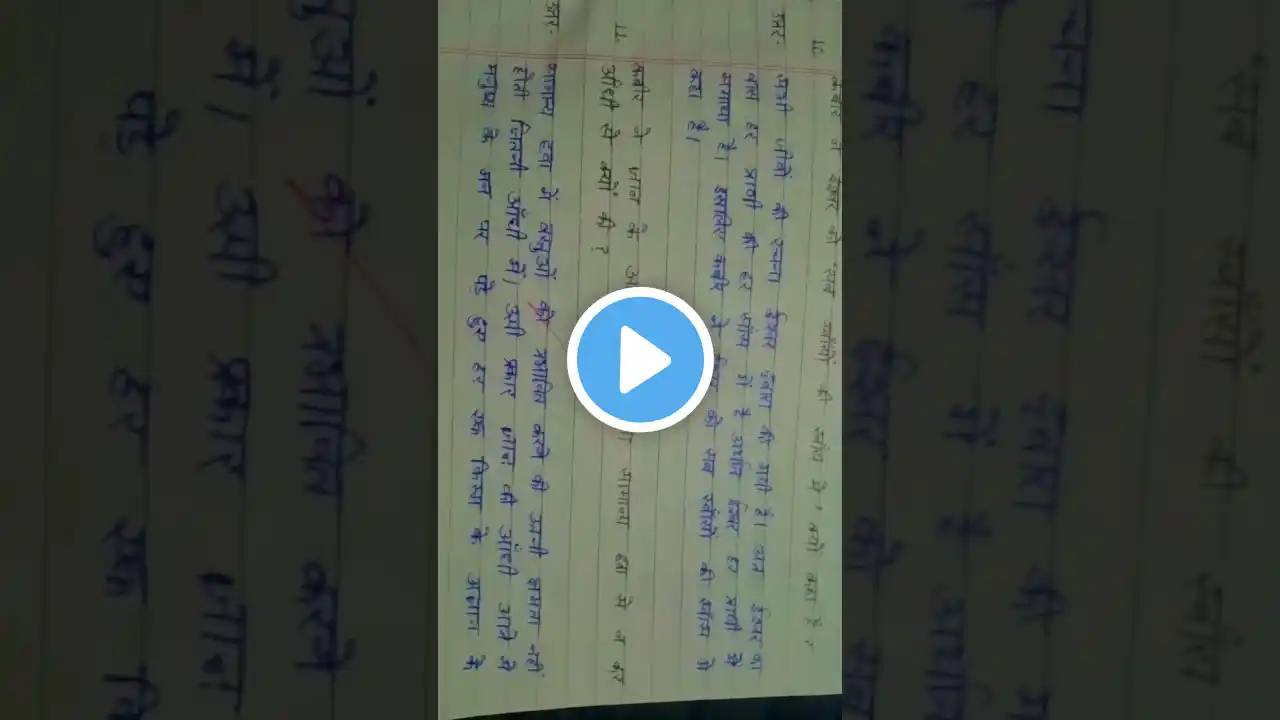 कबीर ने ईश्वर को 'सब स्वाँसों की स्वाँस में' क्यों कहा है ?
उत्तर- सभी जीवों की रचना ईश्वर द्वारा की गयी है। अतः ईश्वर का
वास हर प्राणी की हर सांस में है अर्थात ईश्वर हर प्राणी में
समाया है। इसलिए कबीर ने को सब स्वांसों की स्वांस में
कहा है।
11. कबीर ने ज्ञान के सामान्य हवा से न कर
आँधी से क्यों की ?
उत्तर- सामान्य हवा में वस्तुओं को प्रभावित करने की उतनी क्षमता नहीं
होती जितनी आँधी में। उसी प्रकार ज्ञान की आंधी आने से
मनुष्य के मन पर पड़े हुए हर एक किस्म के अज्ञान के